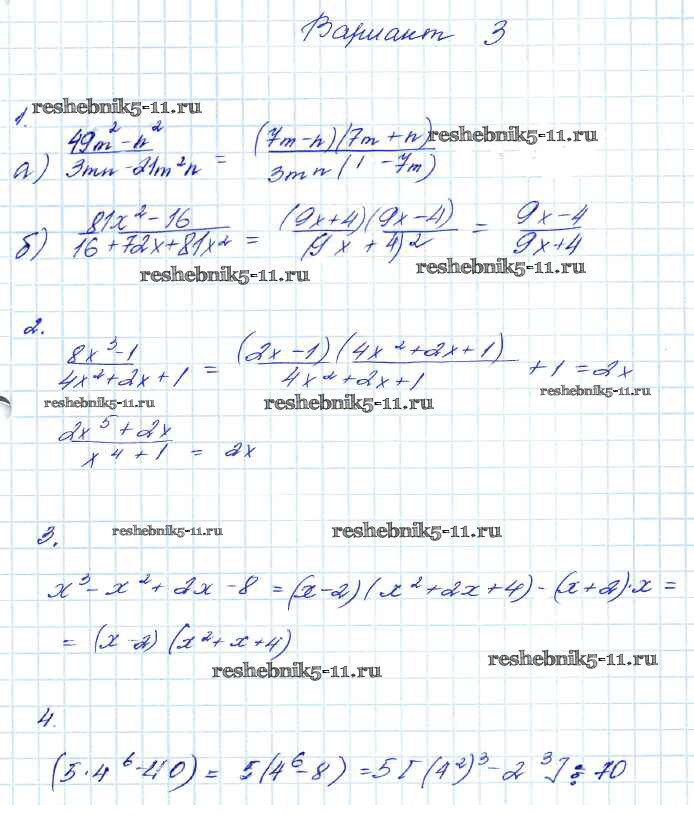 Вариант 3
1.
reshebnik5-11.ru
а) (49m² - n²)/(3mn - 21m²n) = (7m-n)(7m+n)/(3mn(1-7m))
reshebnik5-11.ru
б) (81x² - 16)/(16+72x+81x²) = (9x+4)(9x-4)/(9x+4)² = (9x-4)/(9x+4)
reshebnik5-11.ru reshebnik5-11.ru
2.
(8x³-1)/(4x²+2x+1) = (2x-1)(4x²+2x+1)/(4x²+2x+1) + 1 = 2x
reshebnik5-11.ru reshebnik5-11.ru reshebnik5-11.ru
(2x⁵+2x)/(x⁴+1) = 2x
3.
reshebnik5-11.ru reshebnik5-11.ru
x³ - x² + 2x - 8 = (x-2)(x²+2x+4) - (x+2)·x =
= (x-2)(x²+x+4)
reshebnik5-11.ru reshebnik5-11.ru
4.
(5·4⁶-40) = 5(4⁶-8) = 5[(4²)³-2³] ⋮ 70